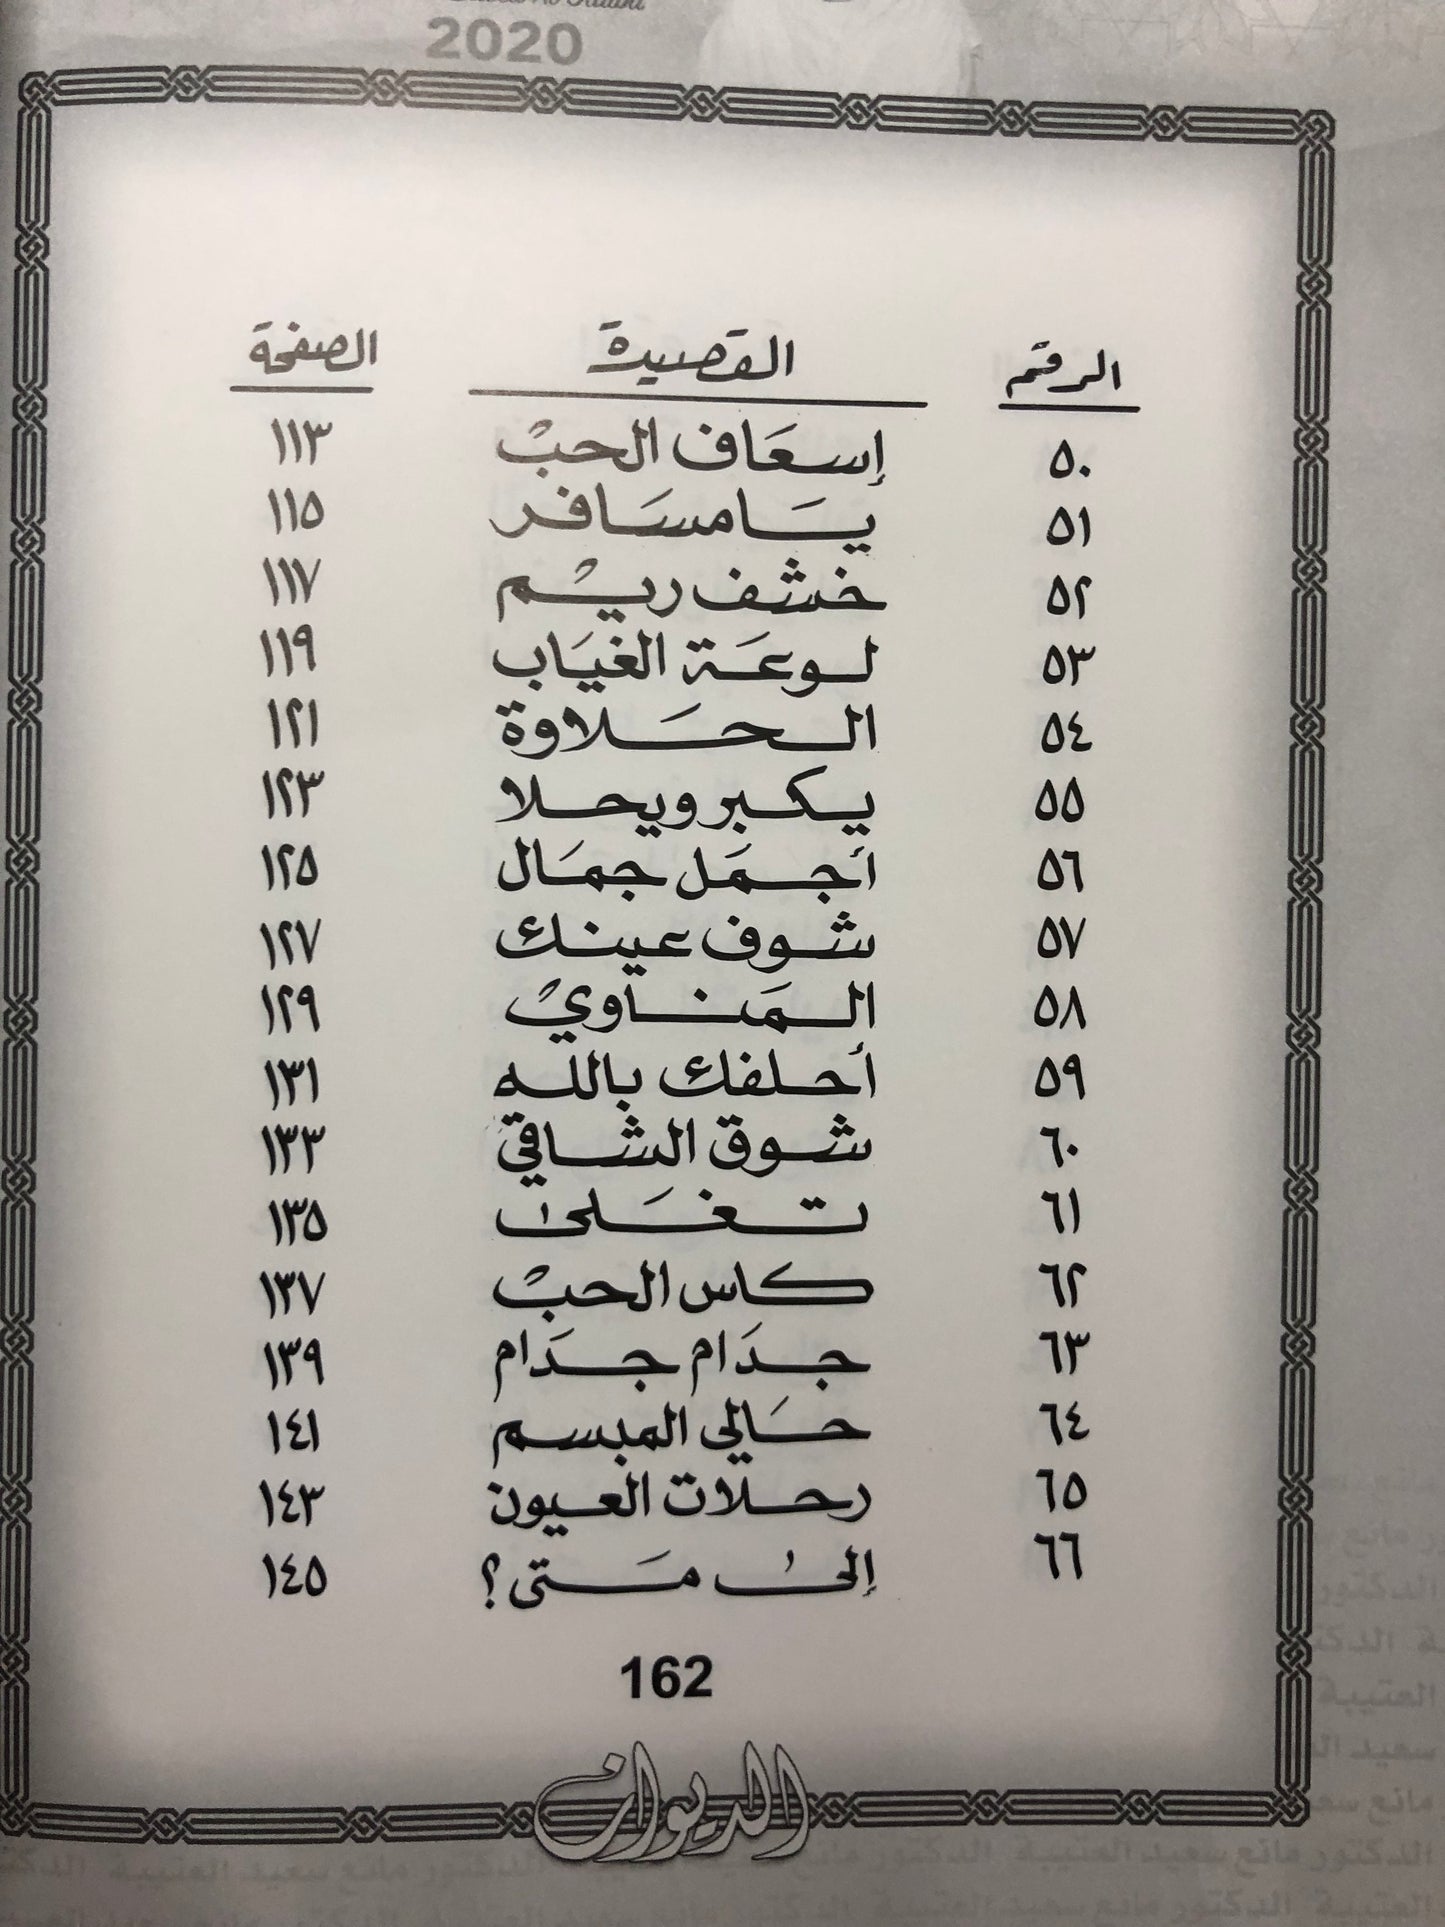 2020
الرقم القصيدة الصفحة
٥٠ إسعَاف الحبْ ١١٣
٥١ يَا مسَافر ١١٥
٥٢ خشف ريْم ١١٧
٥٣ لوعَة الغيَاب ١١٩
٥٤ الحَلاوة ١٢١
٥٥ يكبر ويحلا ١٢٣
٥٦ أجمَل جمَال ١٢٥
٥٧ شوف عينك ١٢٧
٥٨ المَناويْ ١٢٩
٥٩ أحلفك بالله ١٣١
٦٠ شوق الشاقي ١٣٣
٦١ تغَلىٰ ١٣٥
٦٢ كاس الحبْ ١٣٧
٦٣ جدَام جدَام ١٣٩
٦٤ حَالي المبسم ١٤١
٦٥ رحلات العيون ١٤٣
٦٦ إلىٰ مَتى؟ ١٤٥
162
الديوان